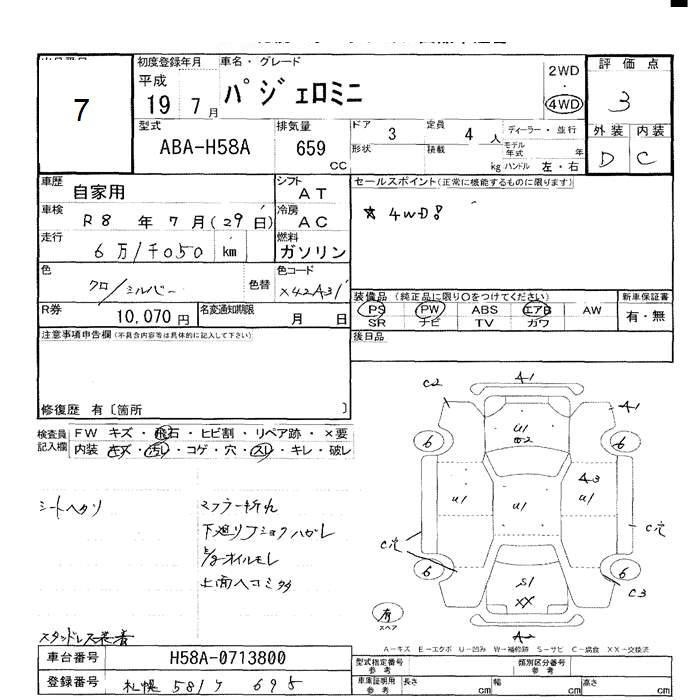 7
初度登録年月
平成
19 7月
車名・グレード
パジェロミニ
2WD
・
4WD
評価点
3
型式
ABA-H58A
排気量
659
CC
ドア 3
定員 4 人
ディーラー・並行
形状
積載
kg
モデル年式
年
ハンドル 左・右
外装 内装
D C
車歴
自家用
シフト
AT
セールスポイント(正常に機能するものに限ります)
☆ 4WD!
車検
R8 年 7 月(29 日)
冷房
AC
走行
6万1千050 km
燃料
ガソリン
色
クロ/シルバー
色替
色コード
X42A31
装備品 (純正品に限り○をつけてください)
新車保証書
PS PW ABS エアB AW
有・無
SR ナビ TV カワ
R券
10,070 円
名変通知期限
月 日
後日品
注意事項申告欄(不具合内容等は具体的に記入して下さい)
修復歴 有〔箇所 〕
検査員記入欄
FW キズ・飛石・ヒビ割・リペア跡・×要
内装 キズ・汚レ・コゲ・穴・スレ・キレ・破レ
シートヘタリ
マフラー折れ
下廻リフショクハガレ
E/gオイルモレ
上面ヘコミ多
スタッドレス装着
C2
A1
A1
6
U1
6
A3
U1
U1
U1
C穴
C穴
6
S1
XX
6
C3
有
スペア
A2
A-キズ E-エクボ U-凹み W-補修跡 S-サビ C-腐食 XX-交換済
車台番号
H58A-0713800
登録番号
札幌 581
型式指定番号
参考
類別区分番号
参考
車庫証明用
参考
長さ
cm
幅
cm
高さ
cm